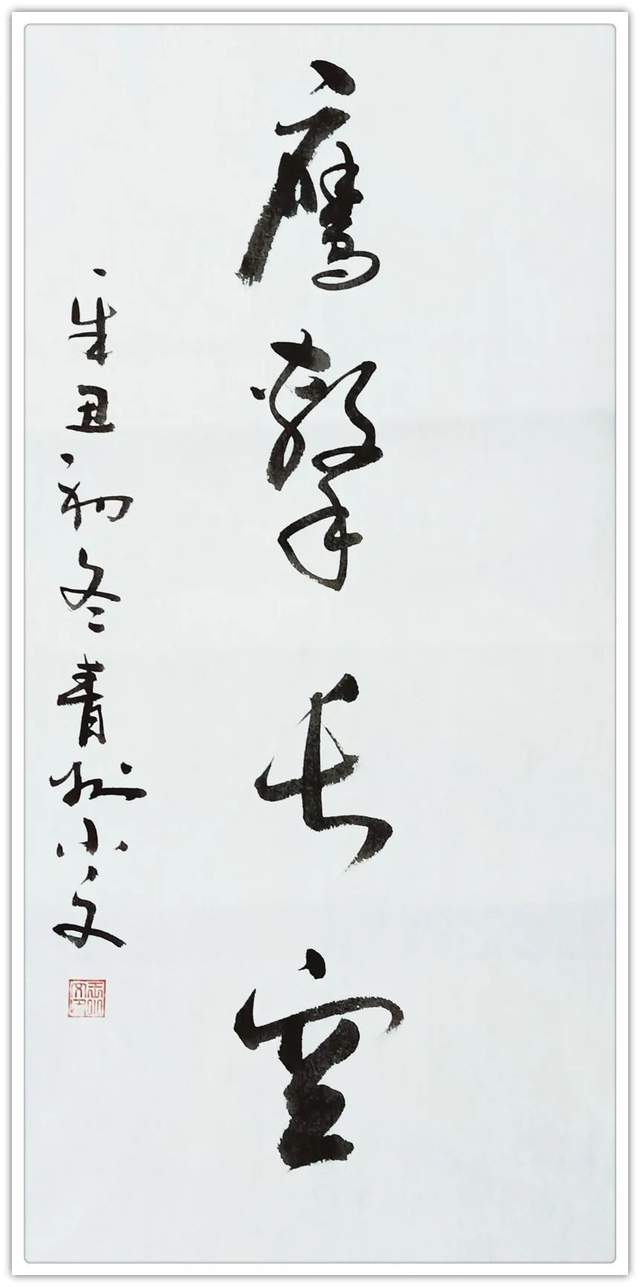 鹰击长空
辛丑初冬青州小文